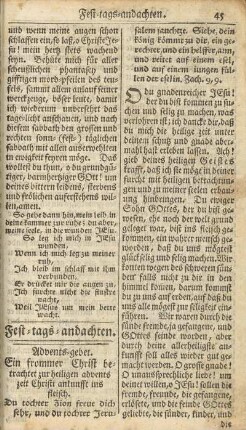 Fest-tags-andachten. 45
und wenn meine augen schon
schlaffen ein, so laß, o HErr JE-
su! mein hertz stets wachend
seyn. Behüte mich für aller
abscheulichen phantasey und
gifftigen mord-pfeilen des teu-
fels, sammt allen anlauf seiner
werckzeuge, böser leute, damit
ich wiederum unbeschwert das
tagelicht anschauen, und nach
diesem sabbath den grossen und
rechten sonn- (fest-) täglichen
sabbath mit allen auserwehlten
in ewigkeit feyren möge. Das
wollest du thun, o du gnädi-
ger, barmhertziger GOtt! um
deines bittern leidens, sterbens
und frölichen auferstehens wil-
len, amen.
So gehe dann hin, mein leib in
deine kammer zur ruhe: du aber,
meine seele, in die wunden JEsu.
So leg ich mich in JEsu
wunden,
Wenn ich mich leg zu meiner
ruh,
Ich bleib im schlaf mit ihm
verbunden,
Er drücket mir die augen zu,
Ich fürchte nicht die finstre
nacht,
Weil JEsus um mein bette
wacht.
Fest-tags-andachten.
Advents-gebet.
Ein frommer Christ be-
trachtet zur heiligen advents
zeit Christi ankunfft ins
fleisch.
Du tochter Zion freue dich
sehr, und du tochter Jeru-
salem jauchze. Siehe, dein
König kömmt zu dir, ein ge-
rechter, und ein helffer, arm,
und reitet auf einem esel,
und auf einem jungen fül-
len der eselin. Zach. 9, 9.
O du gnadenreicher JEsu!
der du bist kommen zu su-
chen und selig machen, was
verlohren ist, ich danck dir, daß
du mich die heilige zeit unter
deinem schutz und gnade aber-
mahl hast erleben lassen. Ach!
gieb deines heiligen Geistes
krafft, daß ich sie möge in deiner
furcht mit heiligen betrachtun-
gen und zu meiner seelen erbau-
ung hinbringen. Du ewiger
Sohn GOttes, der du bist ge-
wesen, ehe noch der welt grund
geleget war, bist ins fleisch ge-
kommen, ein wahrer mensch ge-
worden, daß du uns möchtest
glückselig und selig machen. Wir
konten nicht zu dir in den him-
mel kommen, darum bist du zu
uns kommen auf erden, daß du
uns alle möchtest
Wir waren durch die
sünde fremde, ja gefangene, und
GOttes feinde worden, aber
durch deine allerheiligste an-
kunfft soll alles wieder gut-
gemacht werden. O grosse gnade!
O unaussprechliche liebe! um
deiner willen, o JEsu! sollen die
fremde einheimische, die gefangene
erlösete, und die feinde GOttes
geliebte, die sünder, kinder, und
die